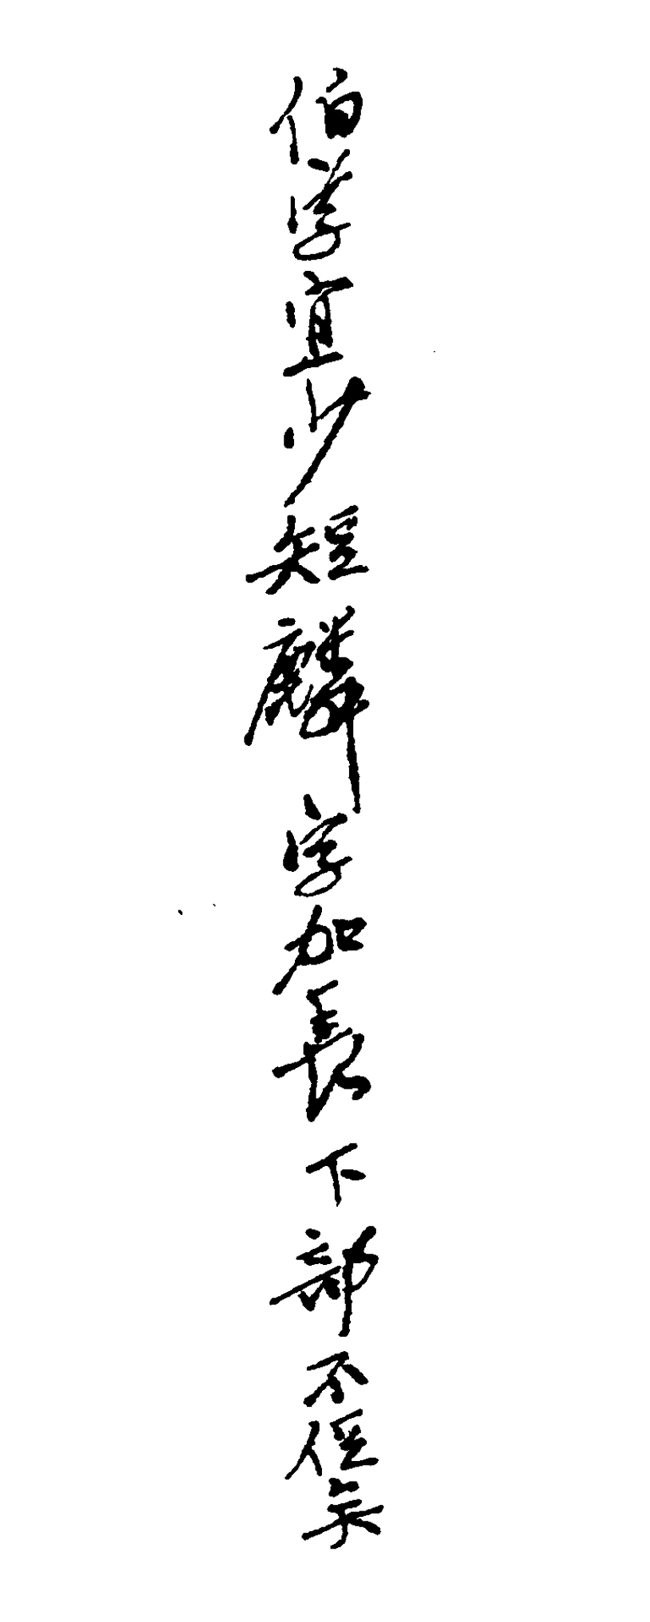 伯字宜少短麟字加長下部不侷矣